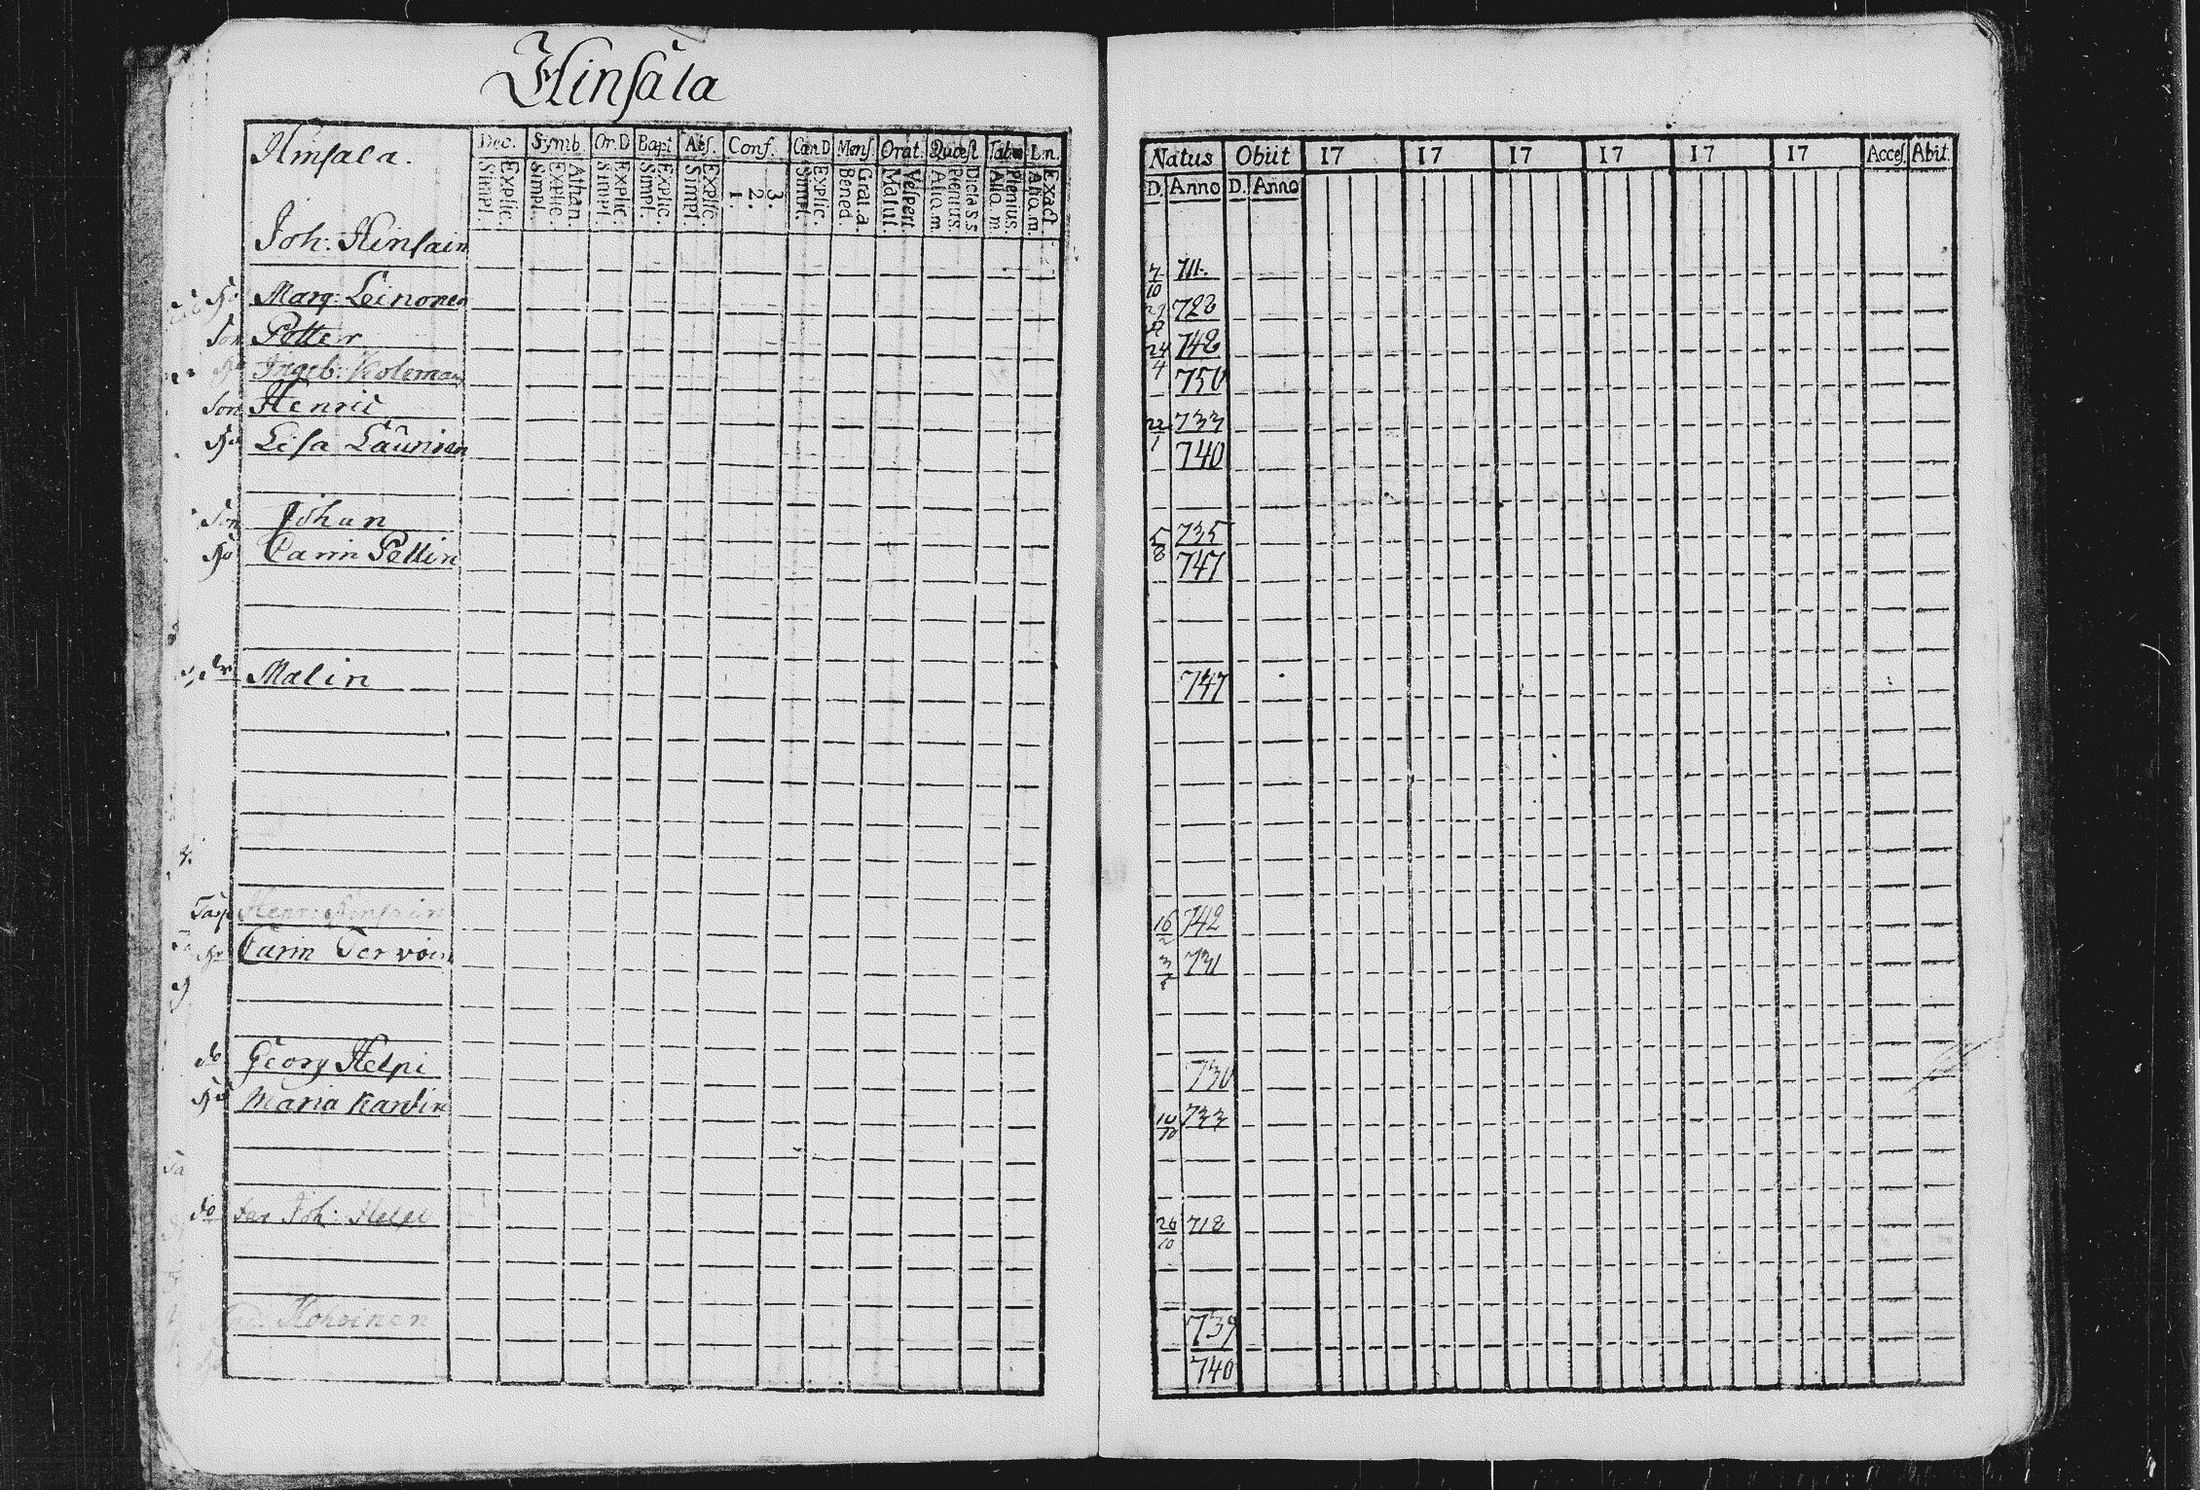 Hinsala
Hinsala.
Dec. Symb. Or.D Bapt. Abs. Conf. Can D Mens. Orat. Quæst. Tab.œ L.n.
Simpl. Explic. Simpl. Explic. Athan. Simpl. Explic. Simpl. Explic. Simpl. Explic. 1. 2. 3. Simpl. Explic. Bened. Grat.a. Matut. Vespert. Aliq.m. Plenius. Dicta S.S. Aliq.m. Plenius. Aliq.m. Exact.
Natus Obiit 17 17 17 17 17 17 Acces. Abit.
D. Anno D. Anno
Joh: Hinsain 7/10 711.
Hu Marg: Leinonen 722
Son Petter 24/4 742
Hu Ingeb: Kolema 750
Son Henric 22/1 733
Hu Lisa Laurinen 740
Son Johan 5/8 735
Hu Carin Pettin 747
dr Malin 747
Henr: Hinsain 16/2 742
Hu Carin Tervoin 731
do Georg Helpi 730
Hu Maria Kantin 10/10 733
do Joh: Helpi 26/10 718
Korvinen 739
740